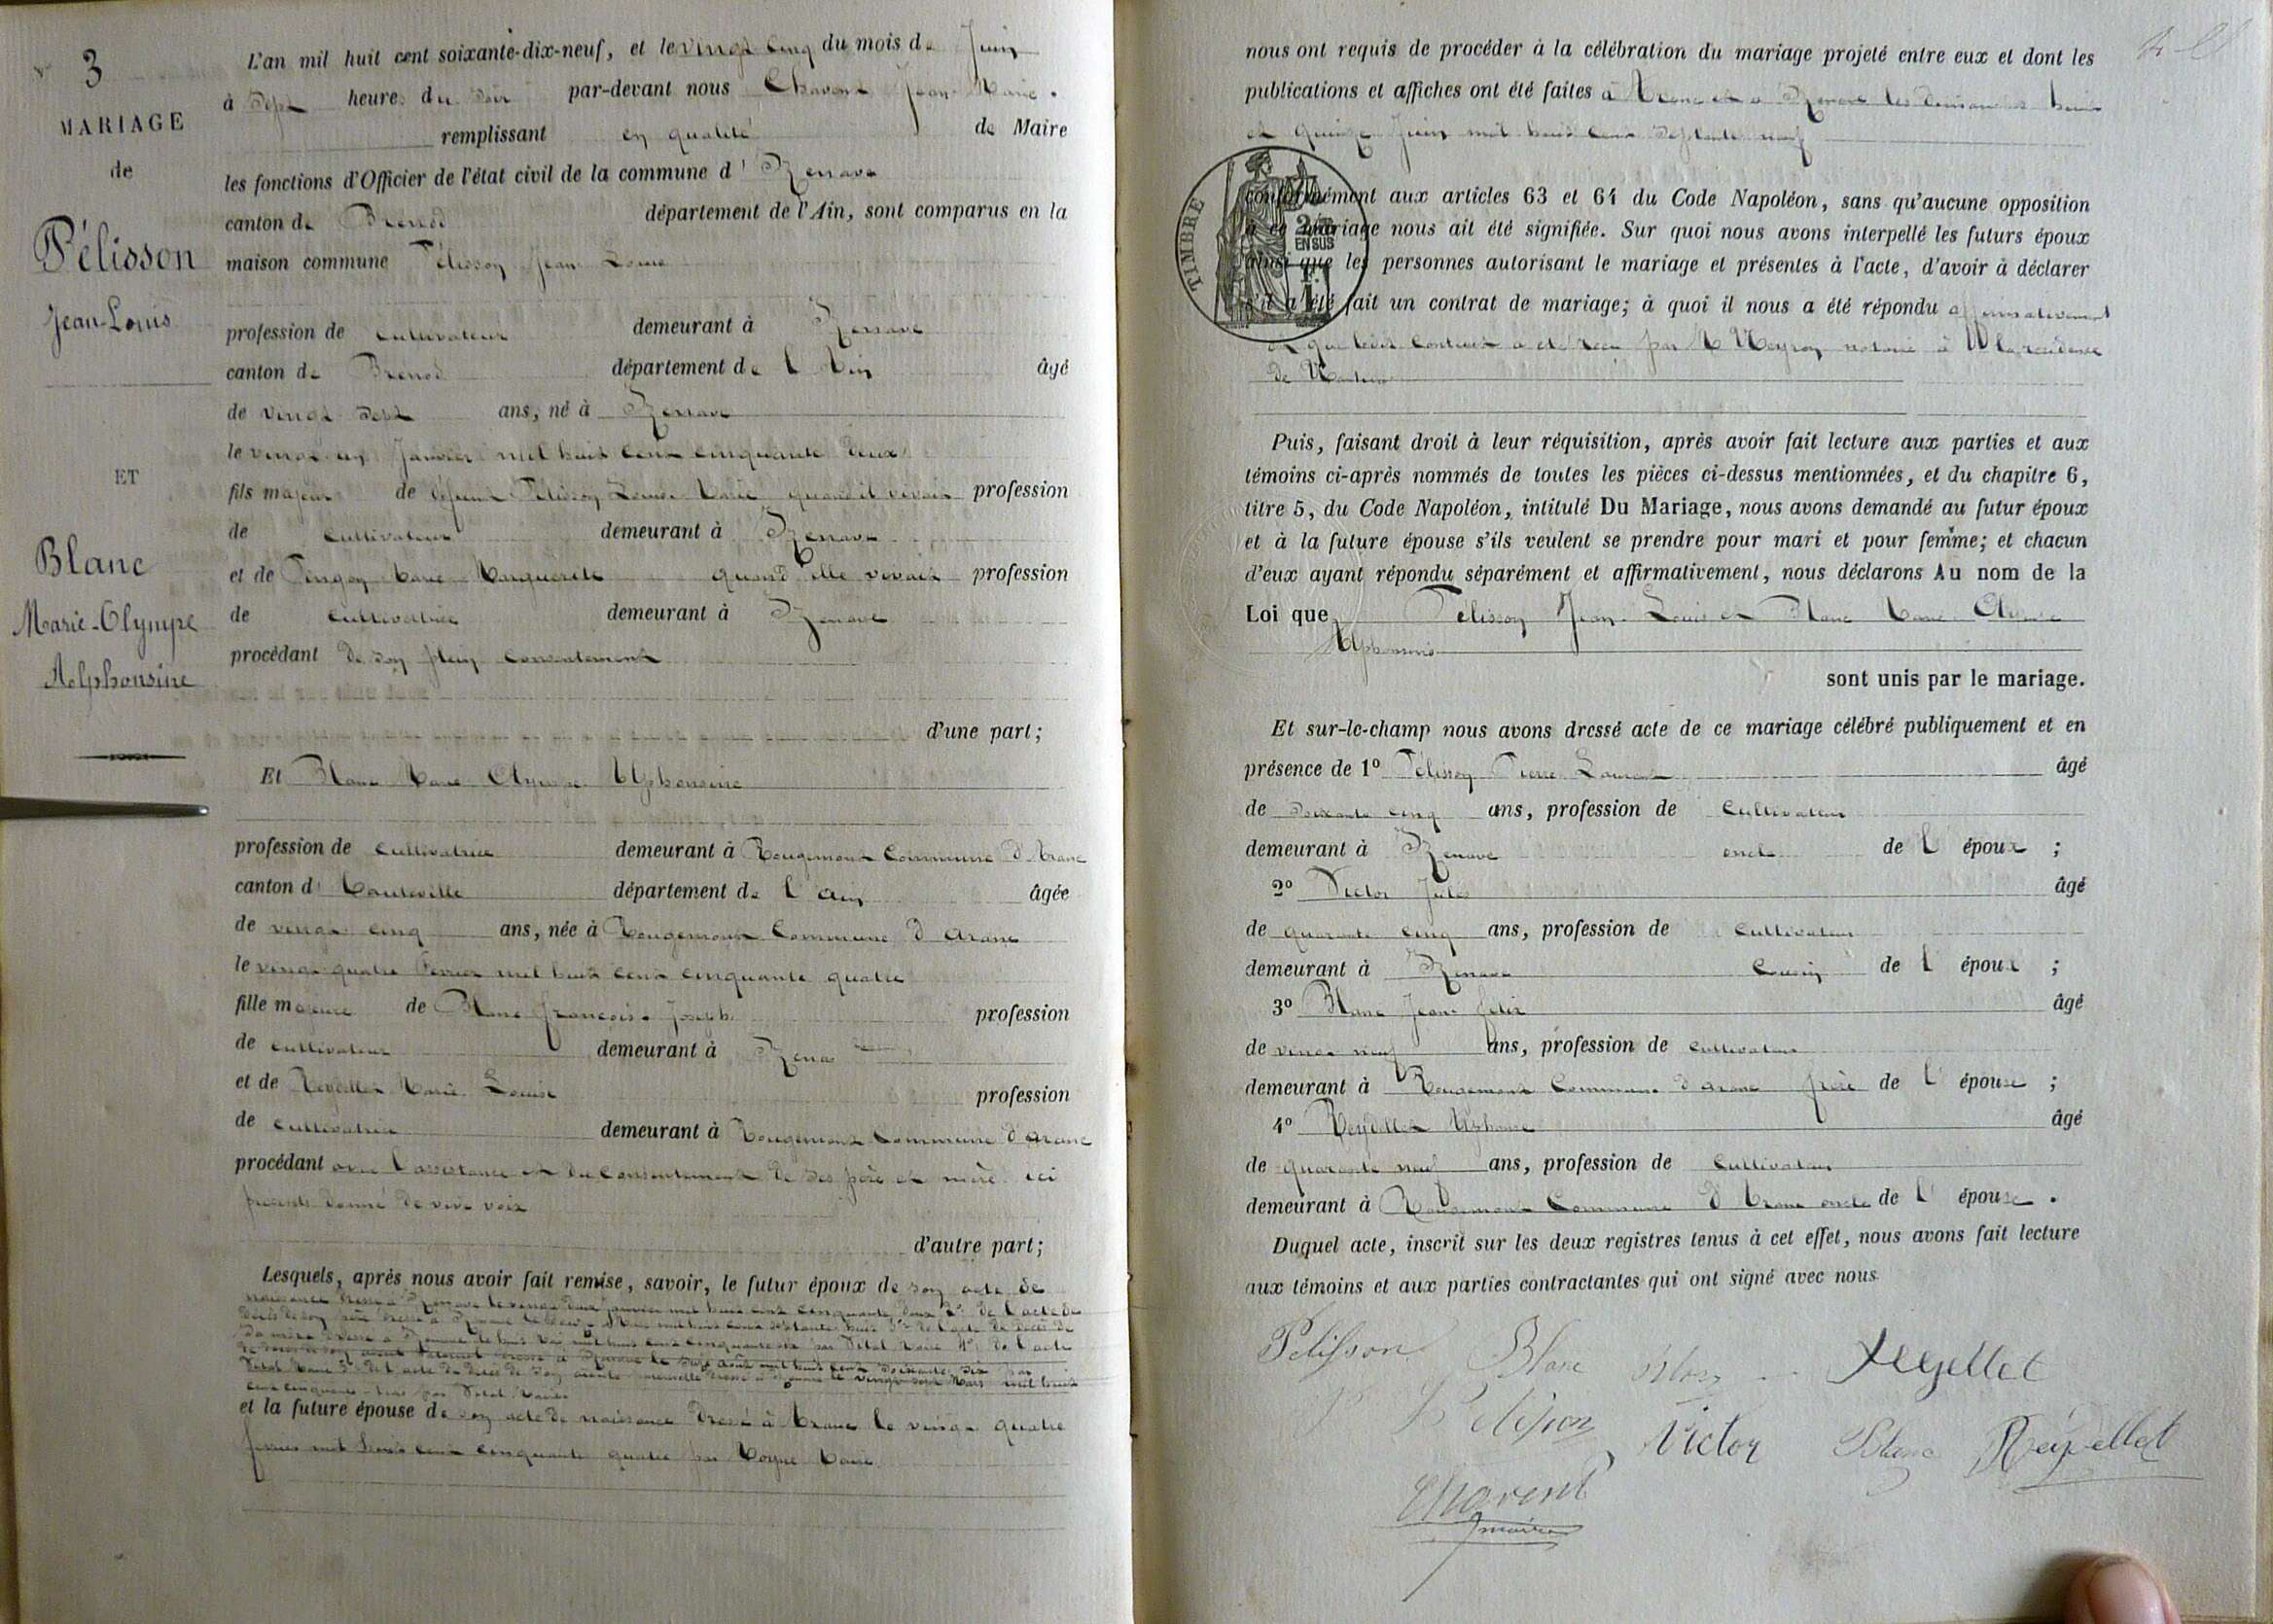 3
MARIAGE
de
Pélisson
Jean-Louis
ET
Blanc
Marie-Olympe
Alphonsine
L'an mil huit cent soixante-dix-neuf, et le vingt cinq du mois de Juin
à Sept heures du soir par-devant nous Chavent Jean Marie.
remplissant en qualité de Maire
les fonctions d'Officier de l'état civil de la commune d' Izenave
canton de Brenod département de l'Ain, sont comparus en la
maison commune Pélisson Jean Louis
profession de cultivateur demeurant à Izenave
canton de Brenod département de l'Ain âgé
de vingt sept ans, né à Izenave
le vingt un Janvier mil huit cent cinquante deux
fils majeur de défunt Pélisson Louis Marie quand il vivait profession
de cultivateur demeurant à Izenave
et de Marie Marguerite quand elle vivait profession
de cultivatrice demeurant à Izenave
procédant de son plein consentement
d'une part;
Et Blanc Marie Olympe Alphonsine
profession de cultivatrice demeurant à Rougemont Commune d'Aranc
canton d' Hauteville département de l'Ain âgée
de vingt cinq ans, née à Rougemont Commune d'Aranc
le vingt quatre Février mil huit cent cinquante quatre
fille majeure de Blanc François Joseph profession
de cultivateur demeurant à
et de Reydellet Marie Louise profession
de cultivatrice demeurant à Rougemont Commune d'Aranc
procédant avec l'assistance et du consentement de ses père et mère ici
présents donné de vive voix
d'autre part;
Lesquels, après nous avoir fait remise, savoir, le futur époux de son acte de
naissance dressé à Izenave le vingt deux janvier mil huit cent cinquante deux 2° de l'acte de
décès de son père dressé à Izenave mil huit cent septante huit 3° de l'acte de décès de
sa mère dressé à Izenave mil huit cent cinquante par Vital Maire 4° de l'acte
de décès de son aïeul paternel dressé à Izenave le août mil huit cent soixante dix par
Vital Maire 5° de l'acte de décès de son aïeule dressé à Izenave le vingt Mars mil huit
cent cinquante par Vital Maire
et la future épouse de son acte de naissance dressé à Aranc le vingt quatre
Février mil huit cent cinquante quatre par Maire.
nous ont requis de procéder à la célébration du mariage projeté entre eux et dont les
publications et affiches ont été faites à Aranc et à Izenave les dimanches huit
et quinze Juin mil huit cent septante neuf
TIMBRE
2/10
EN SUS
conformément aux articles 63 et 64 du Code Napoléon, sans qu'aucune opposition
à ce mariage nous ait été signifiée. Sur quoi nous avons interpellé les futurs époux
ainsi que les personnes autorisant le mariage et présentes à l'acte, d'avoir à déclarer
s'il a été fait un contrat de mariage; à quoi il nous a été répondu affirmativement
et que ledit contrat a été reçu par notaire à la résidence
de
Puis, faisant droit à leur réquisition, après avoir fait lecture aux parties et aux
témoins ci-après nommés de toutes les pièces ci-dessus mentionnées, et du chapitre 6,
titre 5, du Code Napoléon, intitulé Du Mariage, nous avons demandé au futur époux
et à la future épouse s'ils veulent se prendre pour mari et pour femme; et chacun
d'eux ayant répondu séparément et affirmativement, nous déclarons Au nom de la
Loi que Pélisson Jean Louis et Blanc Marie Olympe
Alphonsine
sont unis par le mariage.
Et sur-le-champ nous avons dressé acte de ce mariage célébré publiquement et en
présence de 1° Pélisson Pierre Laurent âgé
de soixante cinq ans, profession de Cultivateur
demeurant à Izenave oncle de l'époux ;
2° Victor Jules âgé
de quarante cinq ans, profession de cultivateur
demeurant à Izenave Cousin de l'époux ;
3° Blanc Jean Felix âgé
de vingt neuf ans, profession de cultivateur
demeurant à Rougemont Commune d'Aranc frère de l'épouse ;
4° Reydellet Alphonse âgé
de quarante neuf ans, profession de Cultivateur
demeurant à Rougemont Commune d'Aranc oncle de l'épouse .
Duquel acte, inscrit sur les deux registres tenus à cet effet, nous avons fait lecture
aux témoins et aux parties contractantes qui ont signé avec nous
Pelisson Blanc Reydellet
Pelisson Victor Blanc Reydellet
Chavent
maire